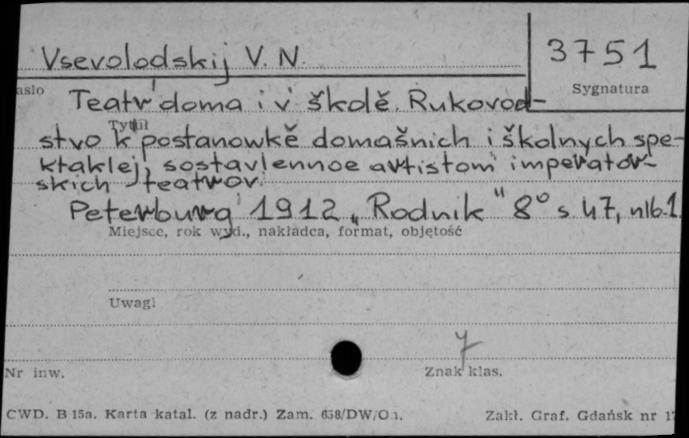 Vsevolodskij V. N.
3751
asło
Sygnatura
Teatr doma i v škole. Rukovod-
Tytuł
stvo k postanowkě domašnich i školnych spe-
ktaklej, sostavlennoe artistom imperator-
skich teatrov.
Peterburg 1912 „Rodnik" 8° s. 47, nlb. 1
Miejsce, rok wyd., nakładca, format, objętość
Uwagi
7
Nr inw.
Znak klas.
CWD. B 15a. Karta katal. (z nadr.) Zam. 658/DW/O
Zakł. Graf. Gdańsk nr 1